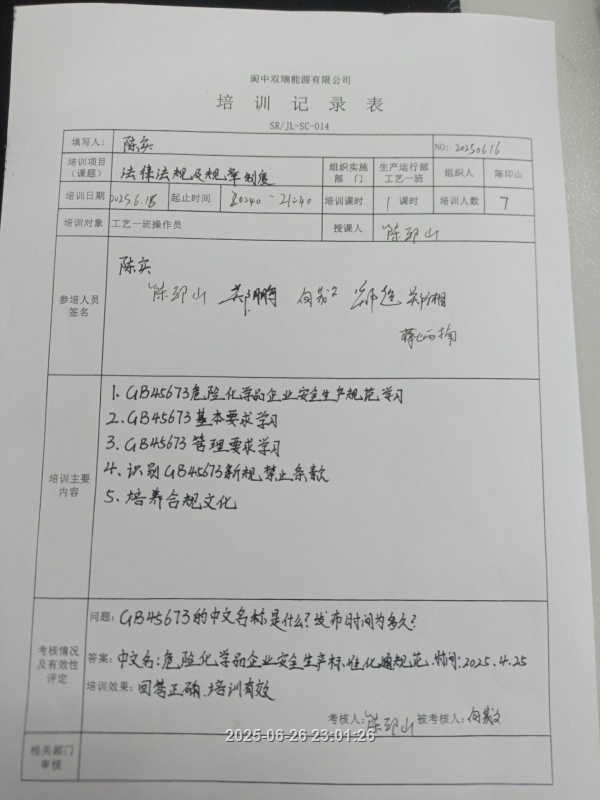 阆中双瑞能源有限公司
培训记录表
SR/JL-SC-014
填写人： 陈实 NO: 20250616
培训项目（课题） 法律法规及规章制度 组织实施部门 生产运行部工艺一班 组织人 陈印山
培训日期 2025.6.18 起止时间 20:40-21:40 培训课时 1课时 培训人数 7
培训对象 工艺一班操作员 授课人 陈印山
参培人员签名
陈实
陈印山
培训主要内容
1. GB45673危险化学品企业安全生产规范学习
2. GB45673基本要求学习
3. GB45673管理要求学习
4、识别GB45673新规禁止条款
5、培养合规文化
考核情况及有效性评定
问题：GB45673的中文名称是什么？发布时间为多久？
答案：中文名：危险化学品企业安全生产标准化通规范.时间：2025.4.25
培训效果：回答正确，培训有效
考核人：陈印山 被考核人：
相关部门审核
2025-06-26 23:01:26